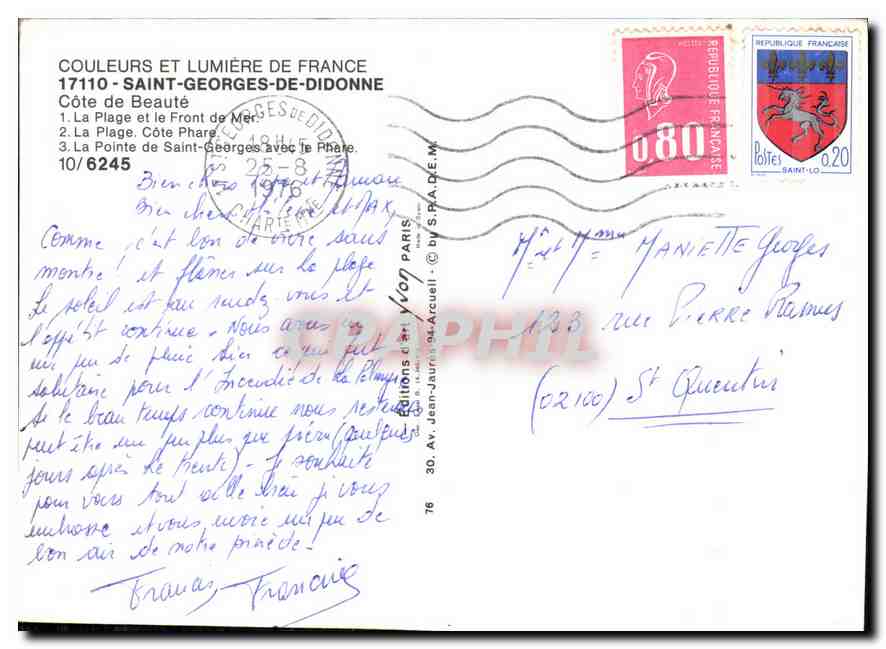 COULEURS ET LUMIÈRE DE FRANCE
17110 - SAINT-GEORGES-DE-DIDONNE
Côte de Beauté
1. La Plage et le Front de Mer.
2. La Plage. Côte Phare.
3. La Pointe de Saint-Georges avec le Phare.
10/6245
ST GEORGES DE DIDONNE
18H45
25-8
1976
CHARTE MME
REPUBLIQUE FRANÇAISE
0.80
REPUBLIQUE FRANÇAISE
POSTES
0,20
SAINT-LO
Bien chers et
Bien chers et MAX,
Comme c'est bon de vivre sans
montre ! et flâner sur la plage
Le soleil est au rendez-vous et
l'appétit continue. Nous avons eu
un peu de pluie hier ce qui fut
salutaire pour l'Incendie de la Palmyre
Si le beau temps continue nous resterons
peut être un peu plus que prévu (quelques
jours après le trente) - Je souhaite
pour vous tout aille bien je vous
embrasse et vous envoie un peu de
bon air de notre pinède.
Francis Francine
Editions d'art Yvon PARIS
30. Av. Jean-Jaurès 94-Arcueil - © by S.P.A.D.E.M.
76
Mr et Mme MANIETTE Georges
123 rue PIERRE Ramus
(02100) St Quentin
CPAPHIL